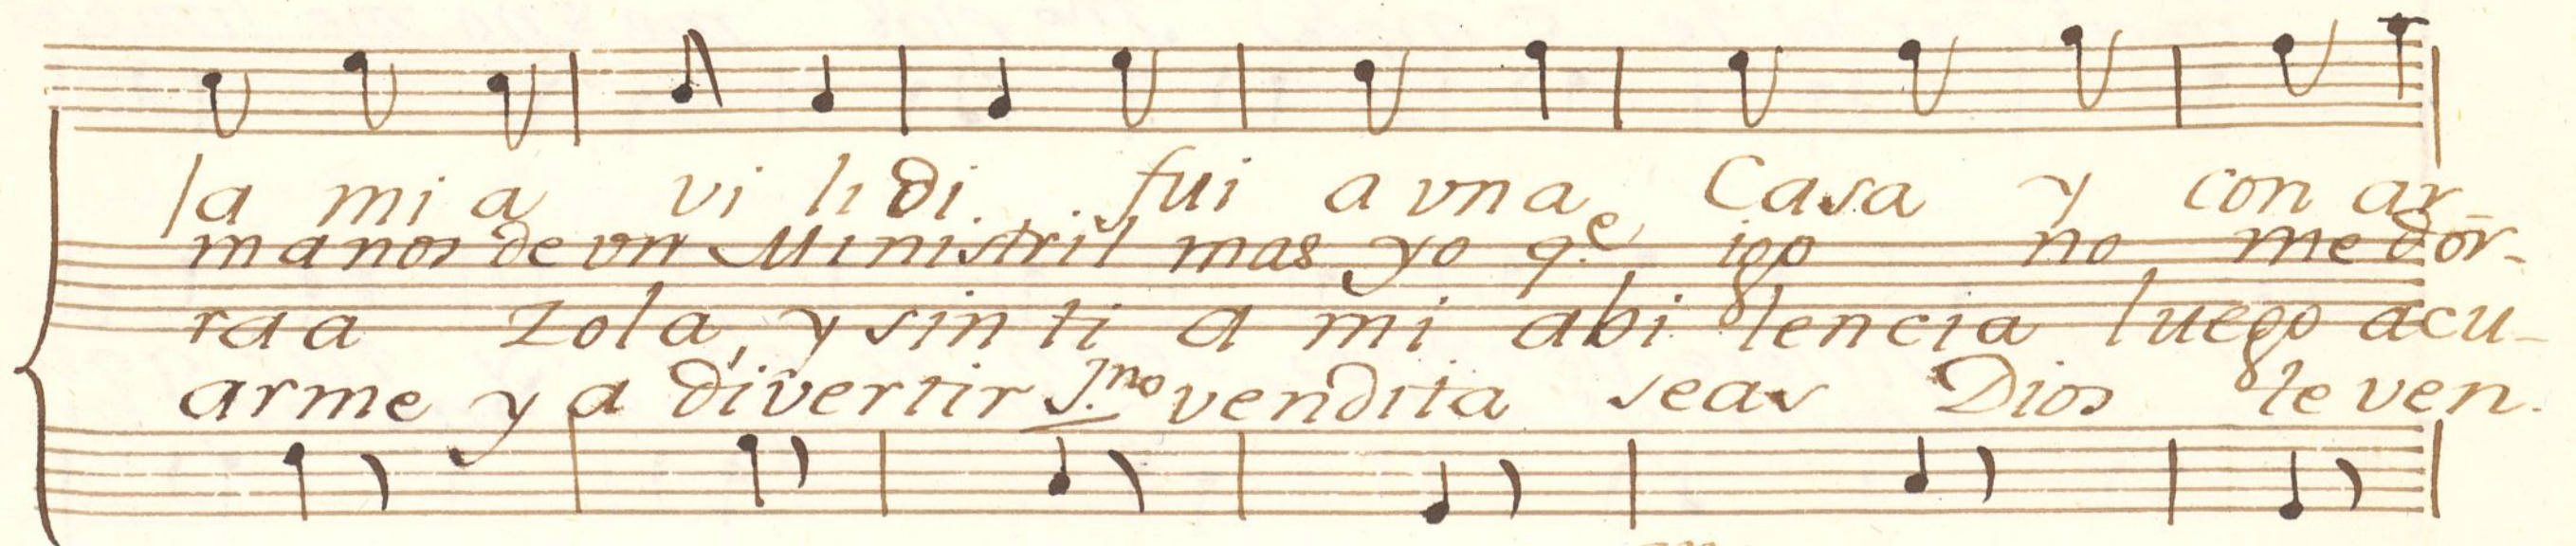 la mi a vi li di. fui a vna Casa y con ar-
manos de vn Ministril mas yo q.e igo no me dor-
raa Zola, y sin ti a mi abi lencia luego acu-
arme y a divertir S.no vendita seas Dios te ven.